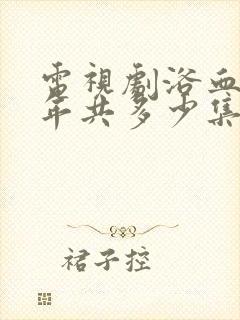 電視劇浴血
年共多少集
裙子控